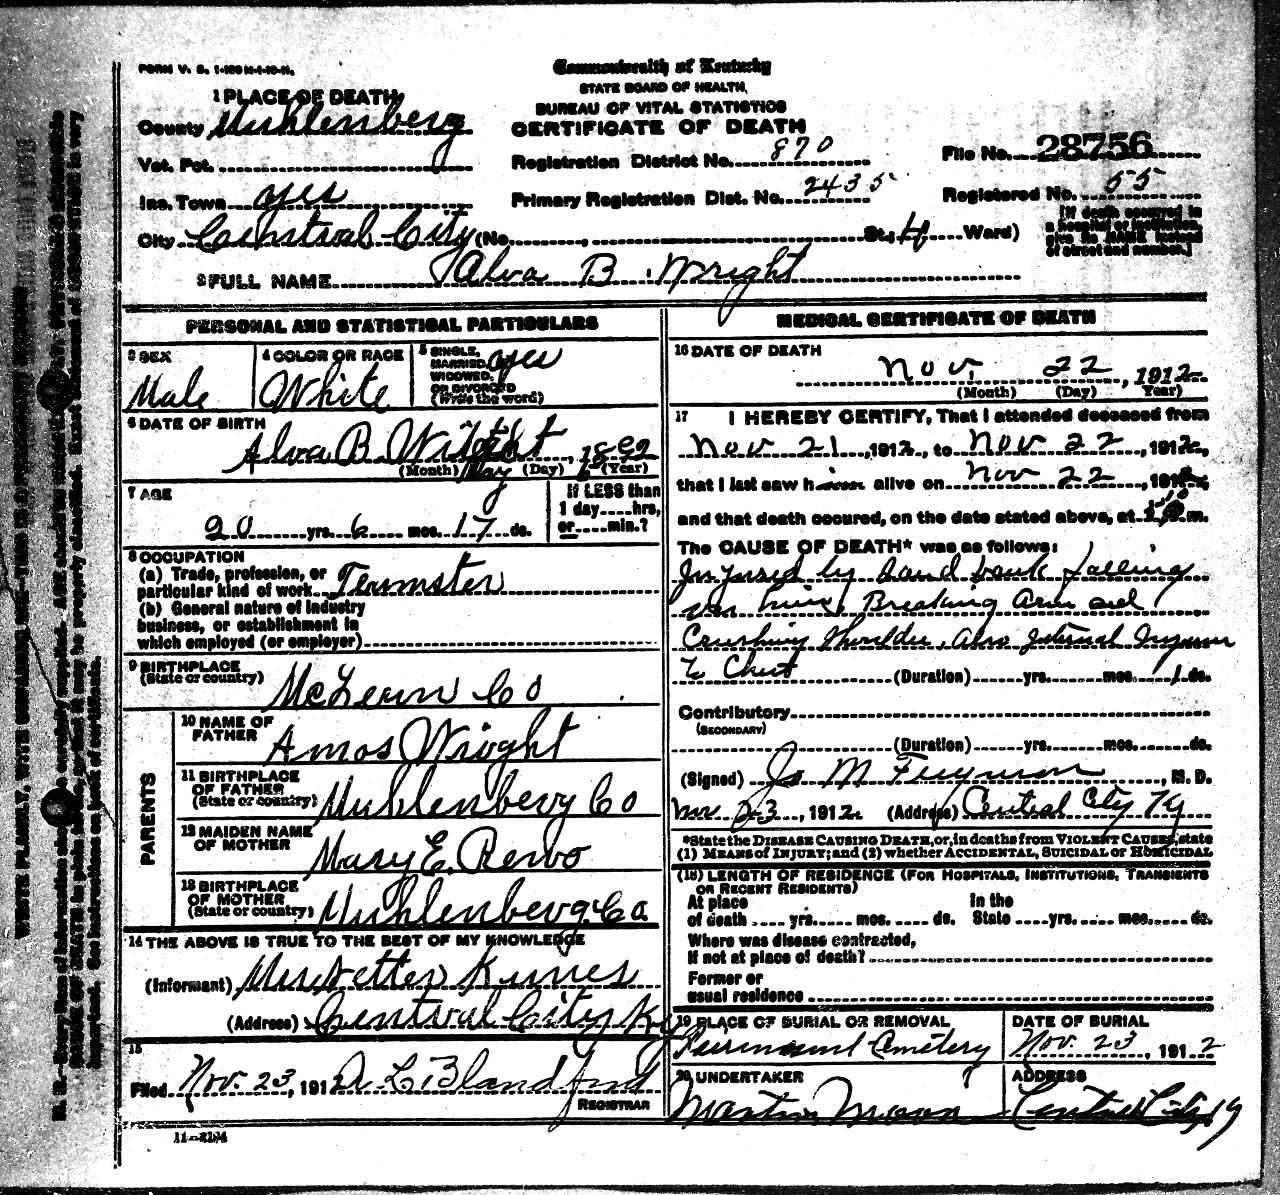 FORM V. S. 1-
Commonwealth of Kentucky
STATE BOARD OF HEALTH,
BUREAU OF VITAL STATISTICS
CERTIFICATE OF DEATH
1 PLACE OF DEATH
County Muhlenberg
Vot. Pct.
Inc. Town yes
City Central City (No. , St.; 4 Ward)
Registration District No. 870
Primary Registration Dist. No. 2435
File No. 28756
Registered No. 55
[If death occurred in
a hospital or institution,
give its NAME instead
of street and number.]
2 FULL NAME Alva B. Wright
PERSONAL AND STATISTICAL PARTICULARS
3 SEX
Male
4 COLOR OR RACE
White
5 SINGLE,
MARRIED,
WIDOWED,
OR DIVORCED
(Write the word)
yes
6 DATE OF BIRTH
Alva B. Wright , 1892
May
(Month) (Day) (Year)
7 AGE
20 yrs. 6 mos. 17 ds.
If LESS than
1 day....hrs,
or.....min.?
8 OCCUPATION
(a) Trade, profession, or
particular kind of work Teamster
(b) General nature of industry
business, or establishment in
which employed (or employer)
9 BIRTHPLACE
(State or country)
McLean Co
PARENTS
10 NAME OF
FATHER
Amos Wright
11 BIRTHPLACE
OF FATHER
(State or country)
Muhlenberg Co
12 MAIDEN NAME
OF MOTHER
Mary E.
13 BIRTHPLACE
OF MOTHER
(State or country)
Muhlenberg Co
14 THE ABOVE IS TRUE TO THE BEST OF MY KNOWLEDGE
(Informant)
(Address) Central City Ky
15
Filed Nov. 23, 1912 A L Blandford
REGISTRAR
11-2194
MEDICAL CERTIFICATE OF DEATH
16 DATE OF DEATH
Nov. 22 , 1912
(Month) (Day) (Year)
17 I HEREBY CERTIFY, That I attended deceased from
Nov 21 , 1912, to Nov 22 , 1912,
that I last saw him alive on Nov 22 , 1912,
and that death occured, on the date stated above, at m.
The CAUSE OF DEATH* was as follows:
Injured by Sand bank falling
on him, Breaking Arm and
Crushing Shoulder, Also Internal Injuries
to Chest (Duration) yrs. mos. 1 ds.
Contributory
(SECONDARY)
(Duration) yrs. mos. ds.
(Signed) Jo M Ferguson , M. D.
Nov 23, 1912 (Address) Central City Ky
*State the DISEASE CAUSING DEATH, or, in deaths from VIOLENT CAUSES, state
(1) MEANS of INJURY; and (2) whether ACCIDENTAL, SUICIDAL or HOMICIDAL
(18) LENGTH OF RESIDENCE (FOR HOSPITALS, INSTITUTIONS, TRANSIENTS
OR RECENT RESIDENTS)
At place In the
of death yrs. mos. ds. State yrs. mos. ds.
Where was disease contracted,
If not at place of death?
Former or
usual residence
19 PLACE OF BURIAL OR REMOVAL
Fairmount Cemetery
DATE OF BURIAL
Nov. 23, 1912
20 UNDERTAKER
Martin Moore
ADDRESS
Central City Ky